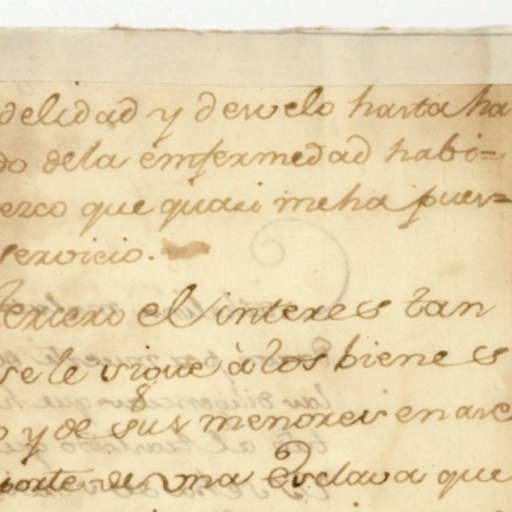 delidad y desvelo hasta ha
do dela emfermedad habi=
ezco que quasi meha pues=
servicio.
tercero el interes tan
se le sigue à los bienes
y de sus menores en
porte de una Esclava que